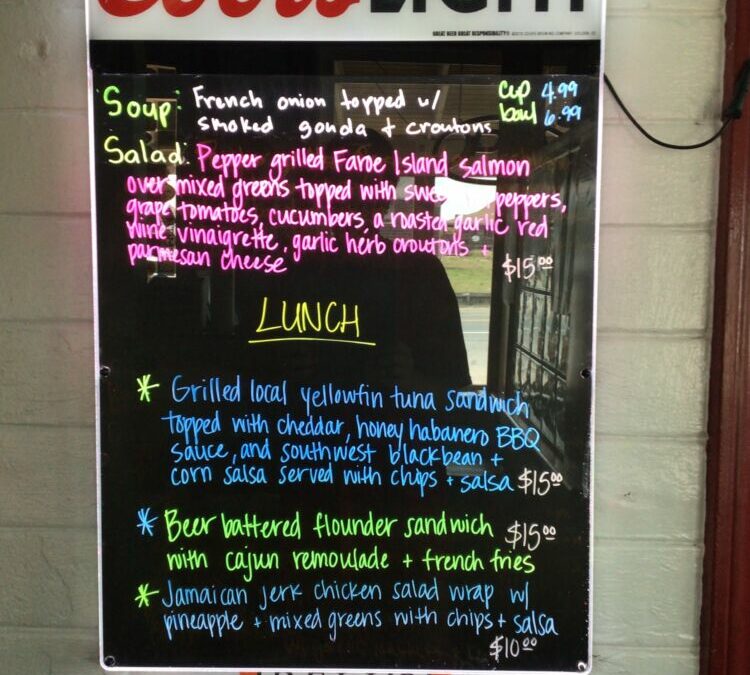 Coors LIGHT
GREAT BEER GREAT RESPONSIBILITY®
Soup: French onion topped w/ cup 4.99
smoked gouda + croutons bowl 6.99
Salad: Pepper grilled Faroe Island salmon
over mixed greens topped with peppers,
grape tomatoes, cucumbers, a roasted garlic red
wine vinaigrette, garlic herb croutons +
parmesan cheese $15.00
LUNCH
* Grilled local yellowfin tuna sandwich
topped with cheddar, honey habanero BBQ
sauce, and southwest blackbean +
corn salsa served with chips + salsa $15.00
* Beer battered flounder sandwich $15.00
with cajun remoulade + french fries
* Jamaican jerk chicken salad wrap w/
pineapple + mixed greens with chips + salsa
$10.00